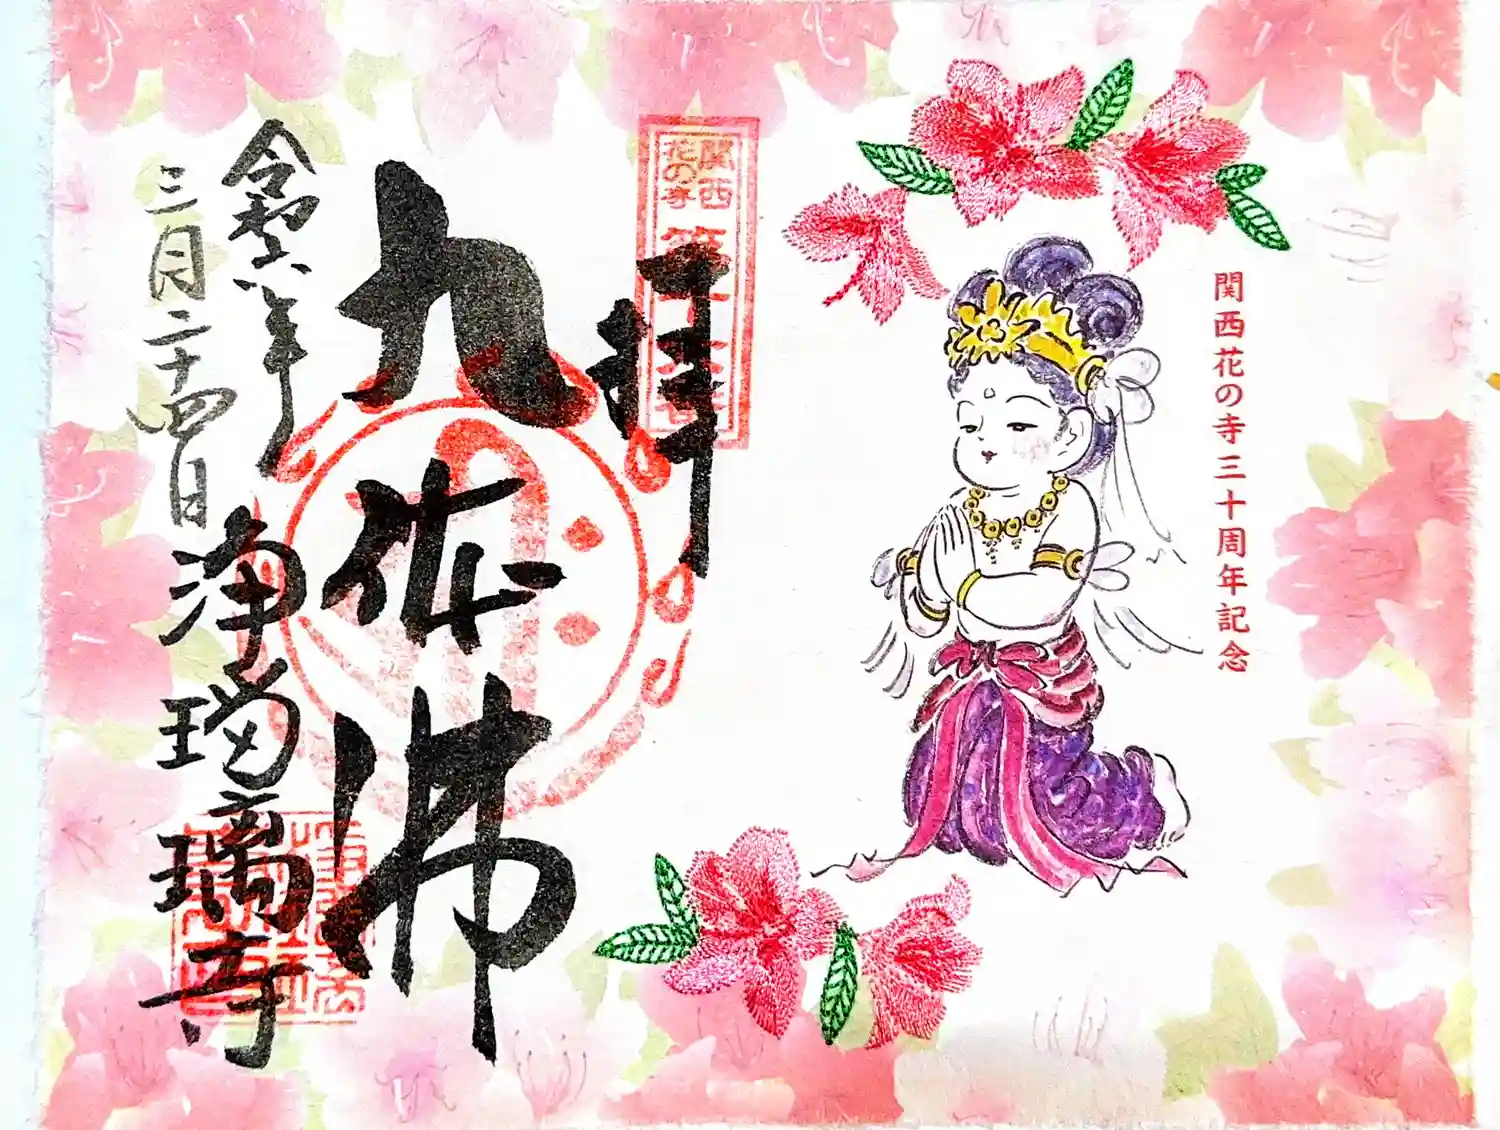 関西花の寺三十周年記念
関西
花の寺
拝
九体佛
令和六年
三月二十四日
浄瑠璃寺